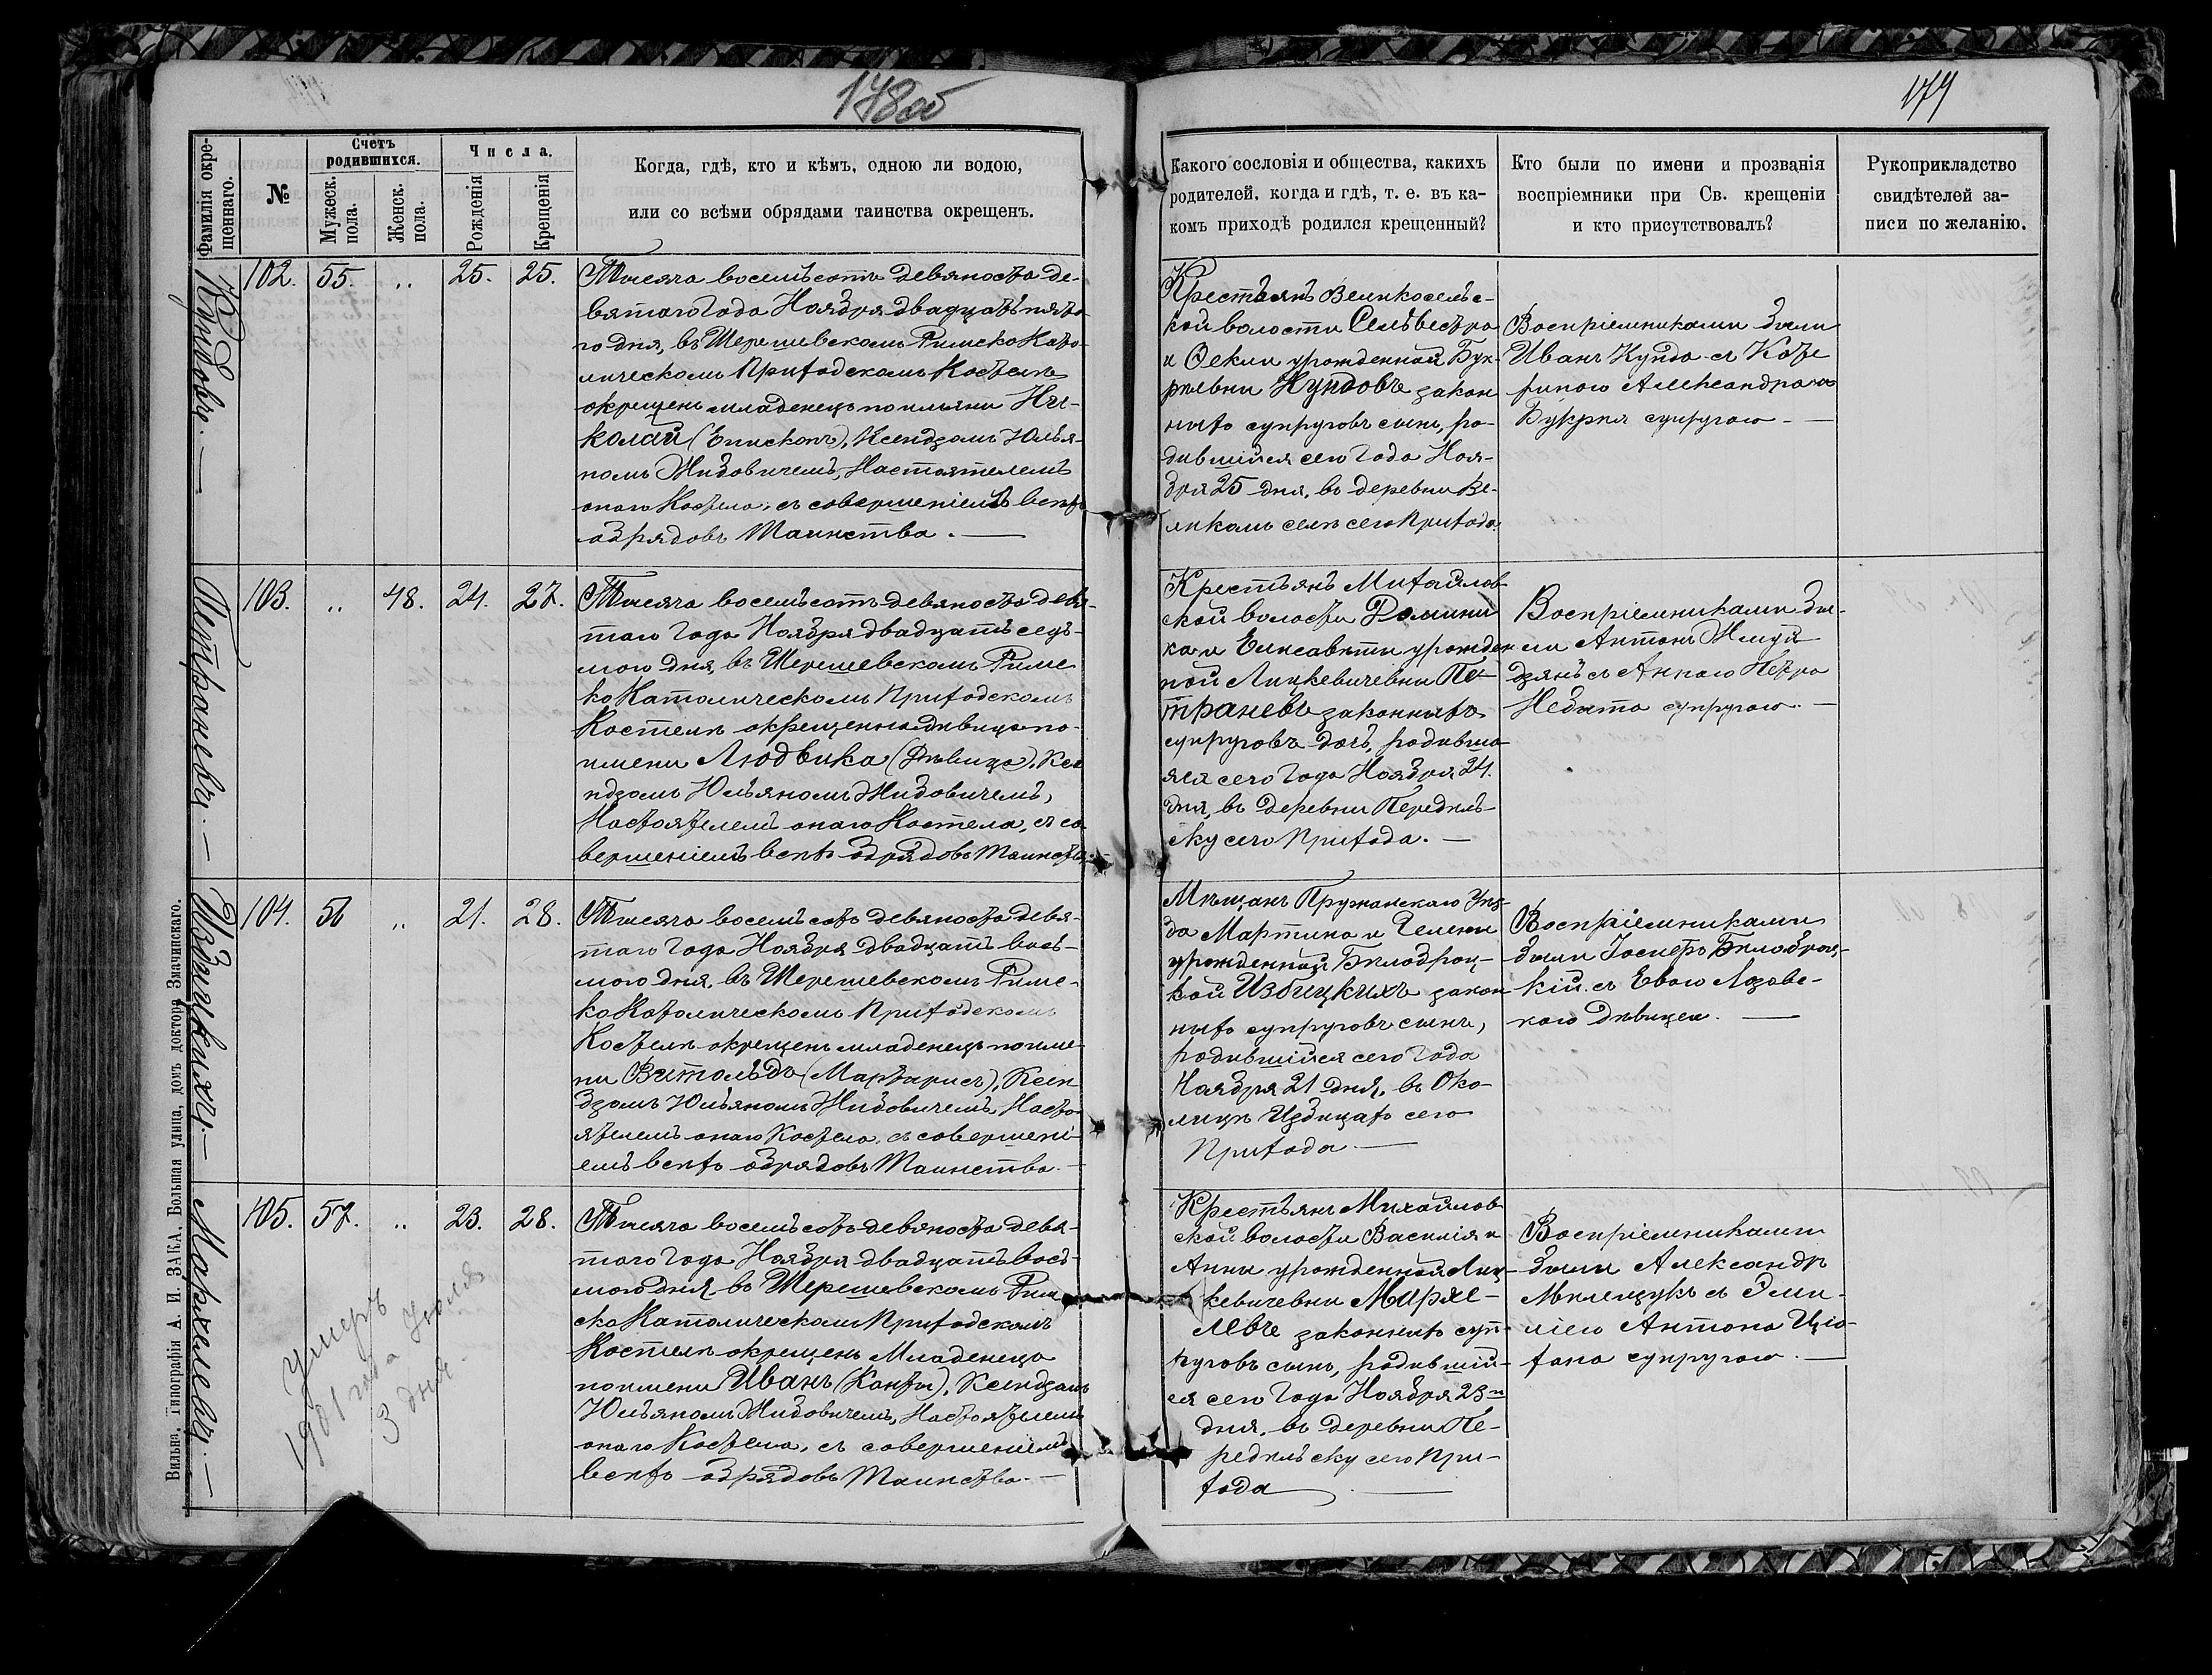 178об
179
Фамилія окре-
щеннаго.
№
Счетъ
родившихся.
Мужеск.
пола.
Женск.
пола.
Числа.
Рожденія
Крещенія
Когда, гдѣ, кто и кѣмъ, одною ли водою,
или со всѣми обрядами таинства окрещенъ.
Какого сословія и общества, какихъ
родителей, когда и гдѣ, т. е. въ ка-
комъ приходѣ родился крещенный?
Кто были по имени и прозванія
воспріемники при Св. крещеніи
и кто присутствовалъ?
Рукоприкладство
свидѣтелей за-
писи по желанію.
Кундовъ. —
102. 55. „ 25. 25.
Тысяча восемьсотъ девяносто де-
вятаго года Ноября двадцать пята-
го дня, въ Шерешевскомъ Римско Като-
лическомъ Приходскомъ Костелѣ
окрещенъ младенецъ по имяни Ни-
колай (Епископъ), Ксендзомъ Юлья-
номъ Жидовичемъ, Настоятелемъ
онаго Костела, съ совершеніемъ всѣхъ
обрядовъ Таинства. —
Крестьянъ Великосельс-
кой волости Сельвестра
и Феклы урожденной Бук-
ряевны Кундовъ закон
ныхъ супруговъ сынъ, ро-
дившійся сего года Ноя-
бря 25 дня, въ деревни Ве-
ликомъ селѣ сего Прихода.
Воспріемниками были
Иванъ Кунда съ Кате
риною Александра
Букрѣя супругою. —
Петраневъ. —
103. „ 48. 24. 27.
Тысяча восемьсотъ девяносто девя-
таго года Ноября двадцать седь-
мого дня, въ Шерешевскомъ Римс
ко Католическомъ Приходскомъ
Костелѣ окрещенна дѣвица по
имени Людвика (Дѣвица), Ксе
ндзомъ Юльяномъ Жидовичемъ,
Настоятелемъ онаго Костела, съ со-
вершеніемъ всѣхъ обрядовъ Таинства.
Крестьянъ Михайлов-
ской волости Домини
ка и Елисаветы урожден
ной Лицкевичевны Пе-
траневъ законныхъ
супруговъ дочь, родивша
яся сего года Ноября 24.
дня, въ деревни Передѣль-
ску сего Прихода. —
Воспріемниками бы-
ли Антонъ Жмуй-
дзянъ съ Анною Петра
Небыта супругою. —
Избицкихъ. —
104. 56 „ 21. 28.
Тысяча восемьсотъ девяносто девя-
таго года Ноября двадцать вось-
мого дня, въ Шерешевскомъ Римс-
ко Католическомъ Приходскомъ
Костелѣ окрещенъ младенецъ по име-
ни Витольдъ (Мартирисъ), Ксен
дзомъ Юльяномъ Жидовичемъ, Насто-
ятелемъ онаго Костела, съ совершені-
емъ всѣхъ обрядовъ Таинства. —
Мѣщанъ Пружанскаго Уѣз-
да Мартина и Гелены
урожденной Бѣлоброц-
кой Избицкихъ закон
ныхъ супруговъ сынъ,
родившійся сего года
Ноября 21 дня, въ Око-
лицѣ Избицахъ сего
Прихода. —
Воспріемниками
были Госперъ Бѣлоброц-
кій съ Евою Лозовс-
кою дѣвицею. —
Мархелевъ. —
105. 57. „ 23. 28.
Тысяча восемьсотъ девяносто девя-
таго года Ноября двадцать вось-
мого дня, въ Шерешевскомъ Рим
ско Католическомъ Приходскомъ
Костелѣ окрещенъ Младенецъ
по имени Иванъ (Канты), Ксендзомъ
Юльяномъ Жидовичемъ, Настоятелемъ
онаго Костела, съ совершеніемъ
всѣхъ обрядовъ Таинства. —
Крестьянъ Михайлов
ской волости Василія и
Анны урожденной Лиц-
кевичевны Мархе-
левъ законныхъ суп-
руговъ сынъ, родившій-
ся сего года Ноября 23
дня, въ деревни Пе-
редѣльску сего При-
хода —
Воспріемниками
были Александръ
Милещукъ съ Эми-
ліею Антона Ціо-
хана супругою. —
умеръ
1901 года Іюля
3 дня
Вильна, Типографія А. И. ЗАКА, Большая улица, домъ доктора Змачинскаго.